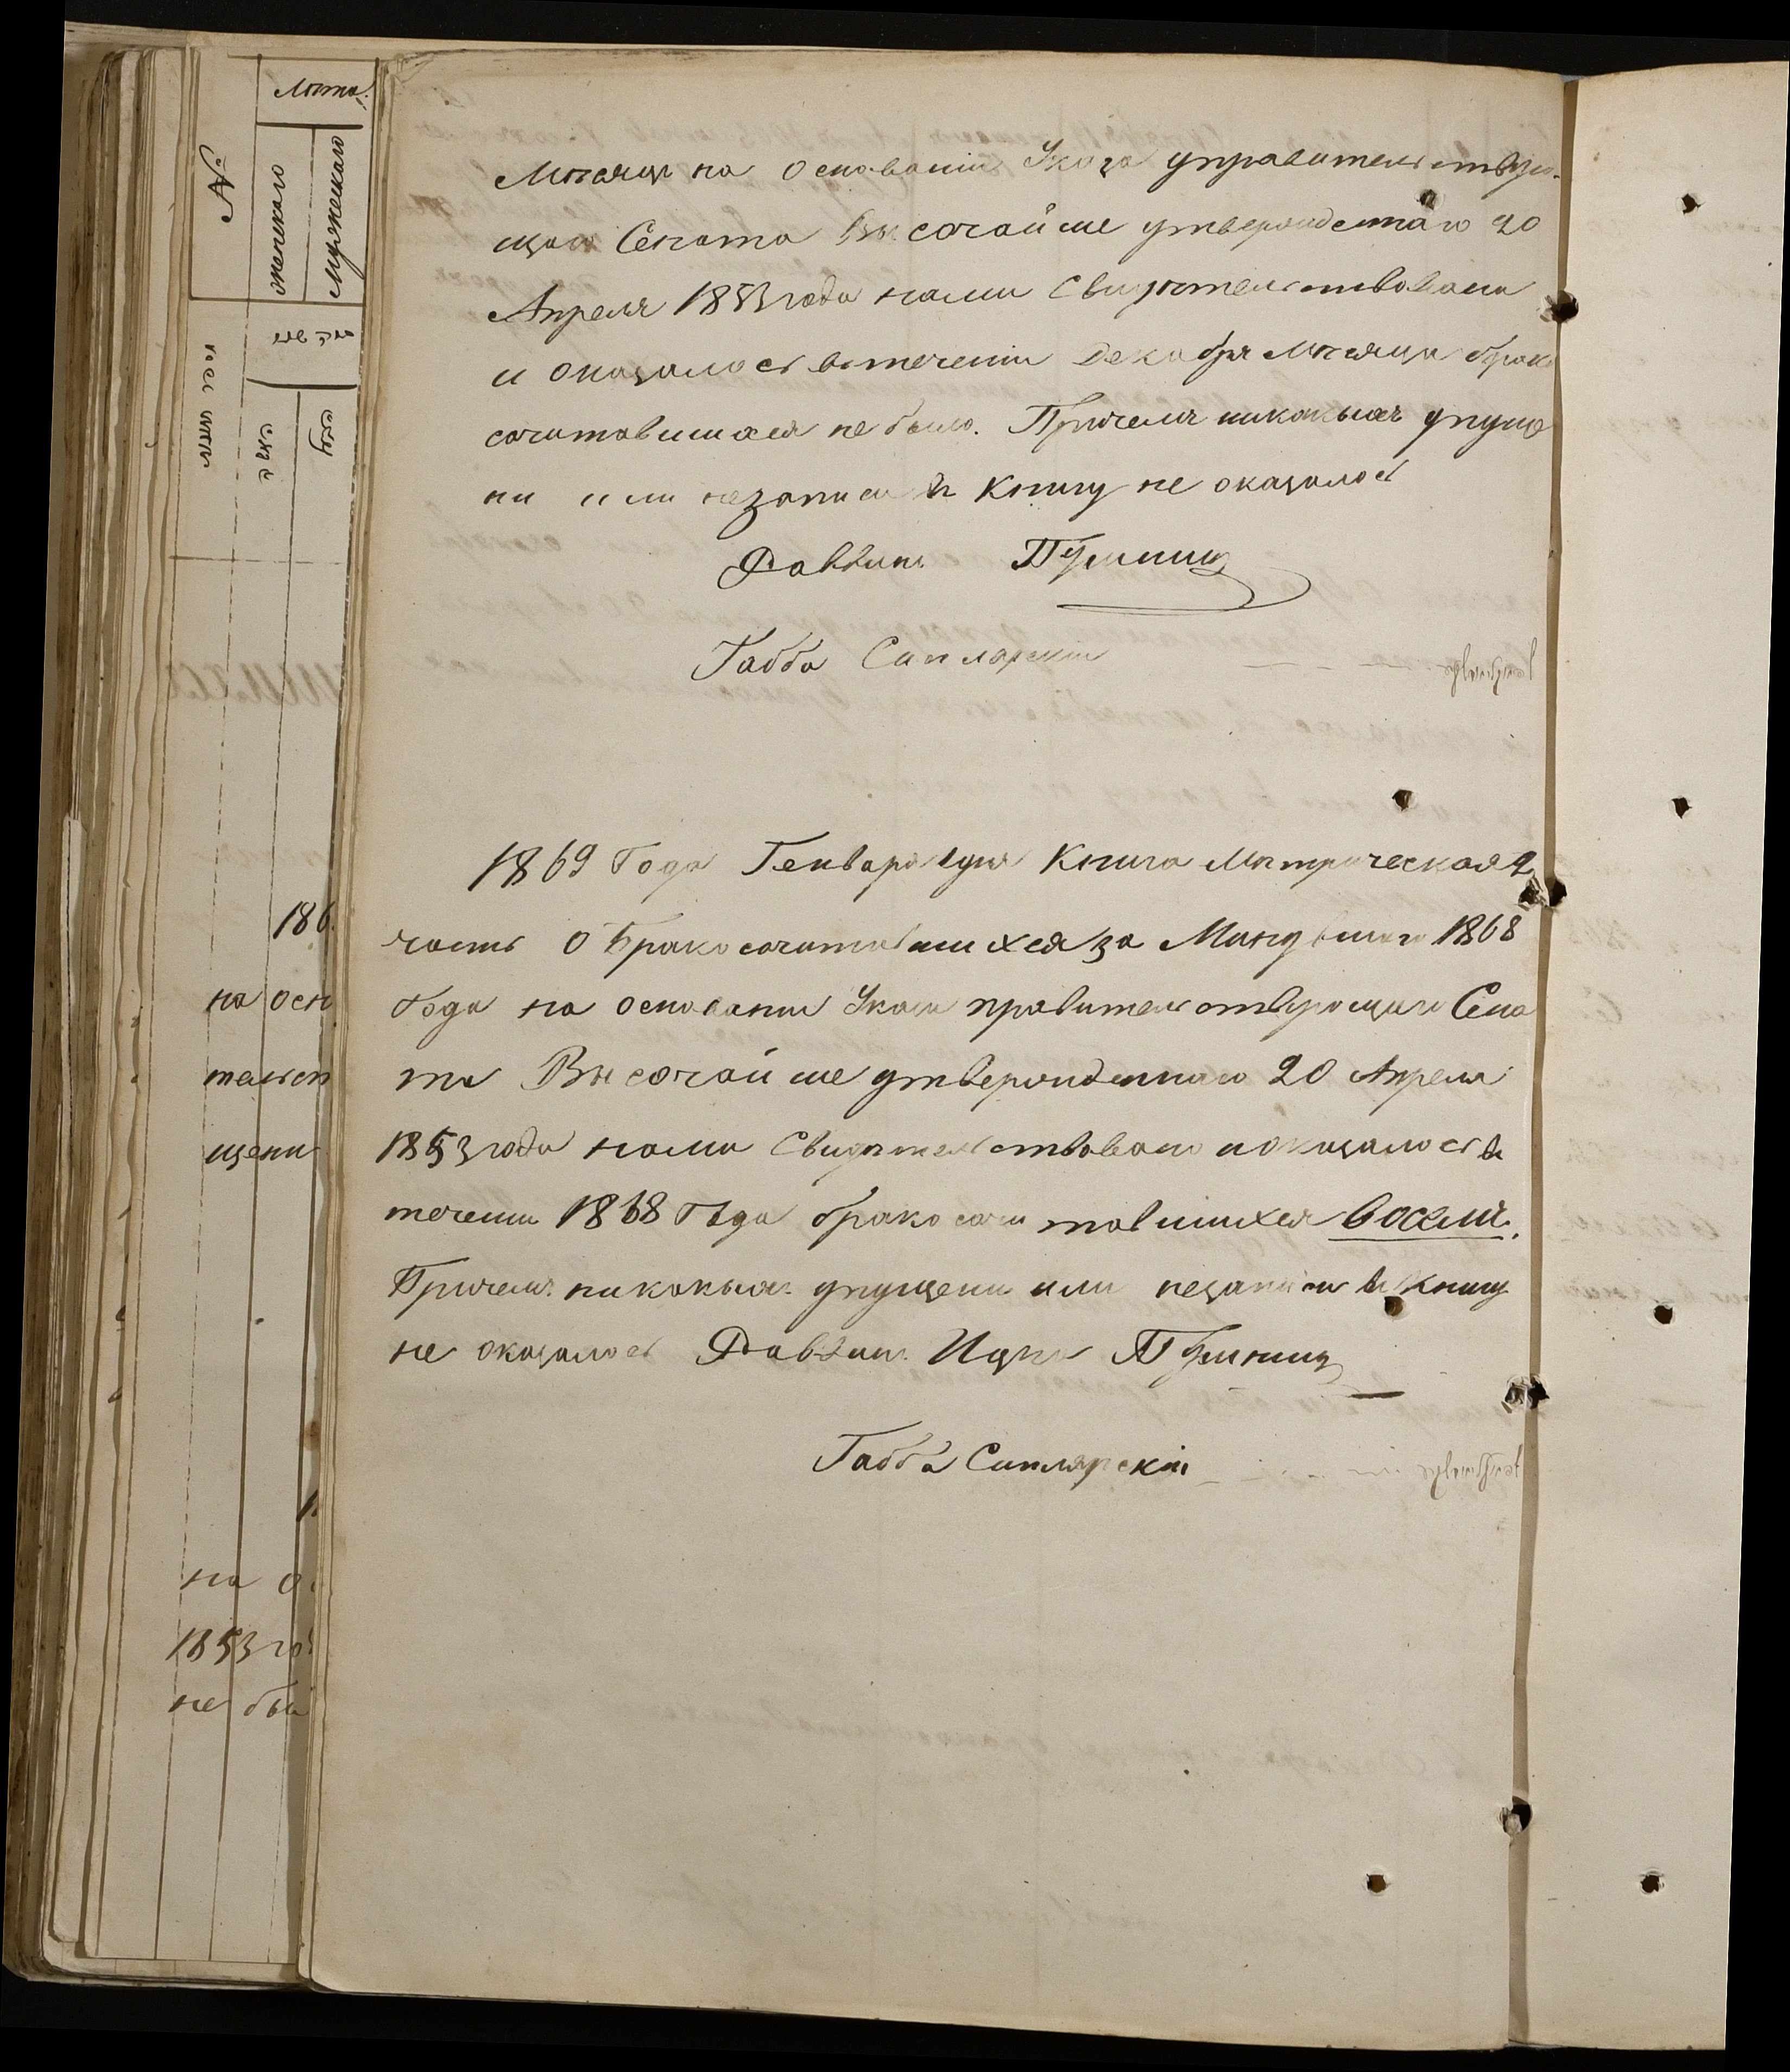 Лѣта.
№
женскаго
Мужескаго
Мѣсяцъ на Основаніи Указа управительствую-
щаго Сената Высочайше утвержденнаго 20
Апреля 1853 года нами Свидѣтельствована
и оказалось втеченіи Декабря Мѣсяца брако
сочитавшихся не было. Причемъ никакихъ упуще
ни или незаписи въ Книгу не оказалось
Раввинъ
Габба Силлярскій
1869 Года Генваря дня Книга Метрическая 2
часть О Бракосочитавшихся за Минувшаго 1868
Года на Основаніи Указа правительствующаго Сена
та Высочайше утвержденнаго 20 Апреля
1853 года нами Свидѣтельствовано и оказалось въ
теченіи 1868 Года бракосочитавшихся восемь.
Причемъ никакихъ упущени или незаписи въ Книгу
не оказалось Раввинъ Ицка
Габба Силлярскій
186
на осн
тельст
щени
на о
1853 го
не бы